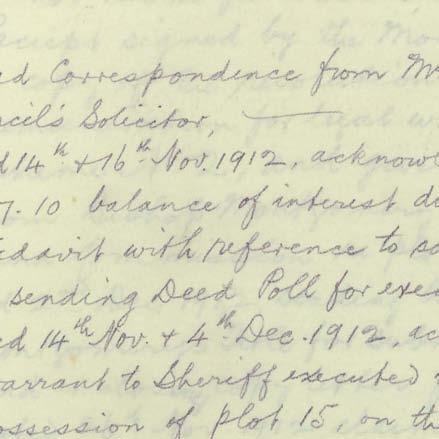 ed Correspondence from Mr
ncil's Solicitor,
d 14th & 16th Nov. 1912, acknowl
7. 10 balance of interest d
idavit with reference to s
sending Deed Poll for exe
ed 14th Nov. & 4th Dec. 1912, ac
arrant to Sheriff executed
ossession of plot 15, on th